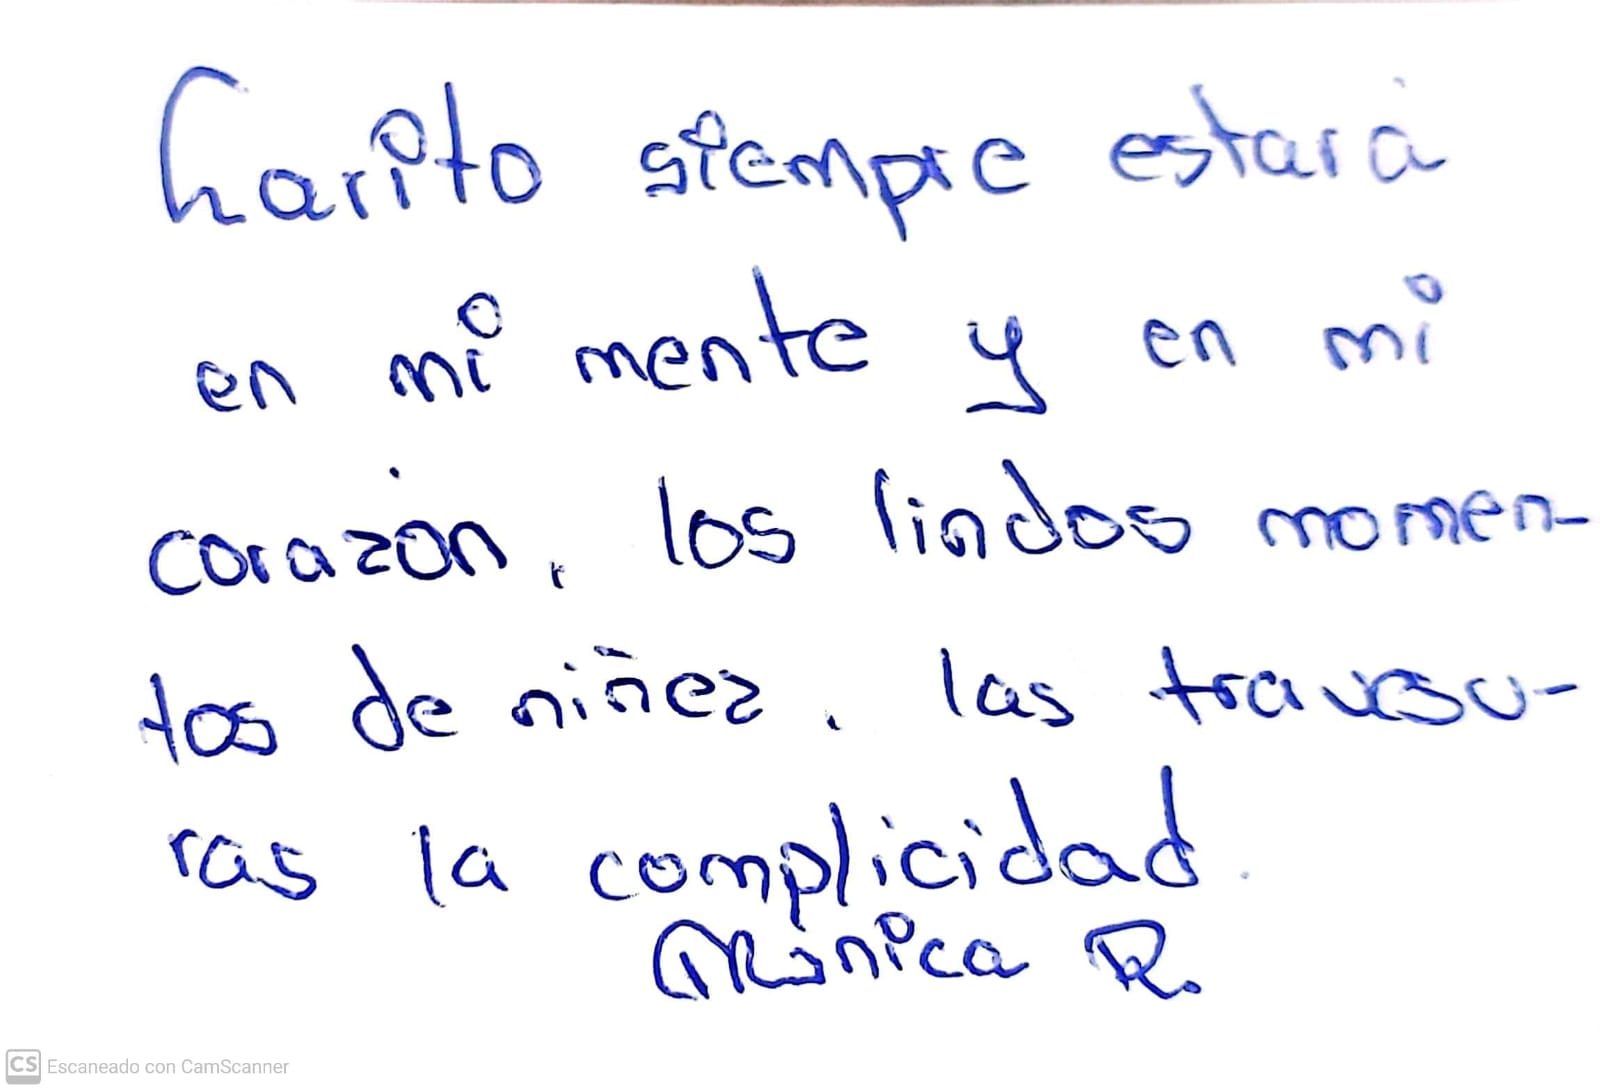 Charito siempre estará
en mi mente y en mi
corazón, los lindos momen-
tos de niñez, las travesu-
ras la complicidad.
Mónica R.
CS Escaneado con CamScanner